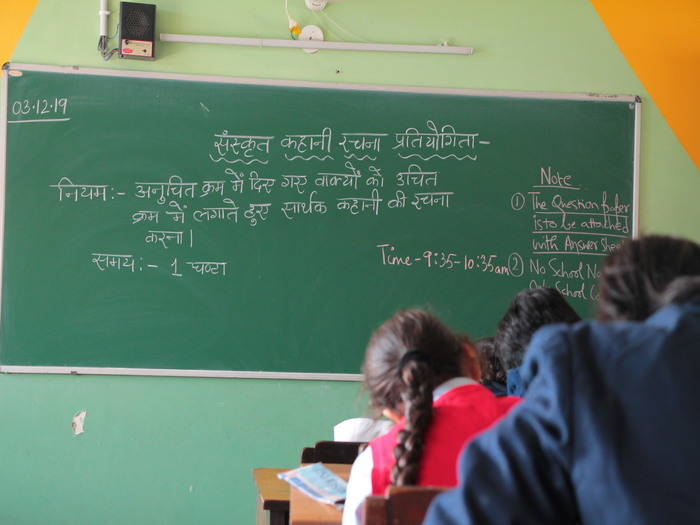 03.12.19
संस्कृत कहानी रचना प्रतियोगिता-
नियम:- अनुचित क्रम में दिए गए वाक्यों को उचित
क्रम में लगाते हुए सार्थक कहानी की रचना
करना।
समय:- 1 घण्टा
Time-9:35-10:35am
Note
① The Question Paper
is to be attached
with Answer Sheet
② No School
School